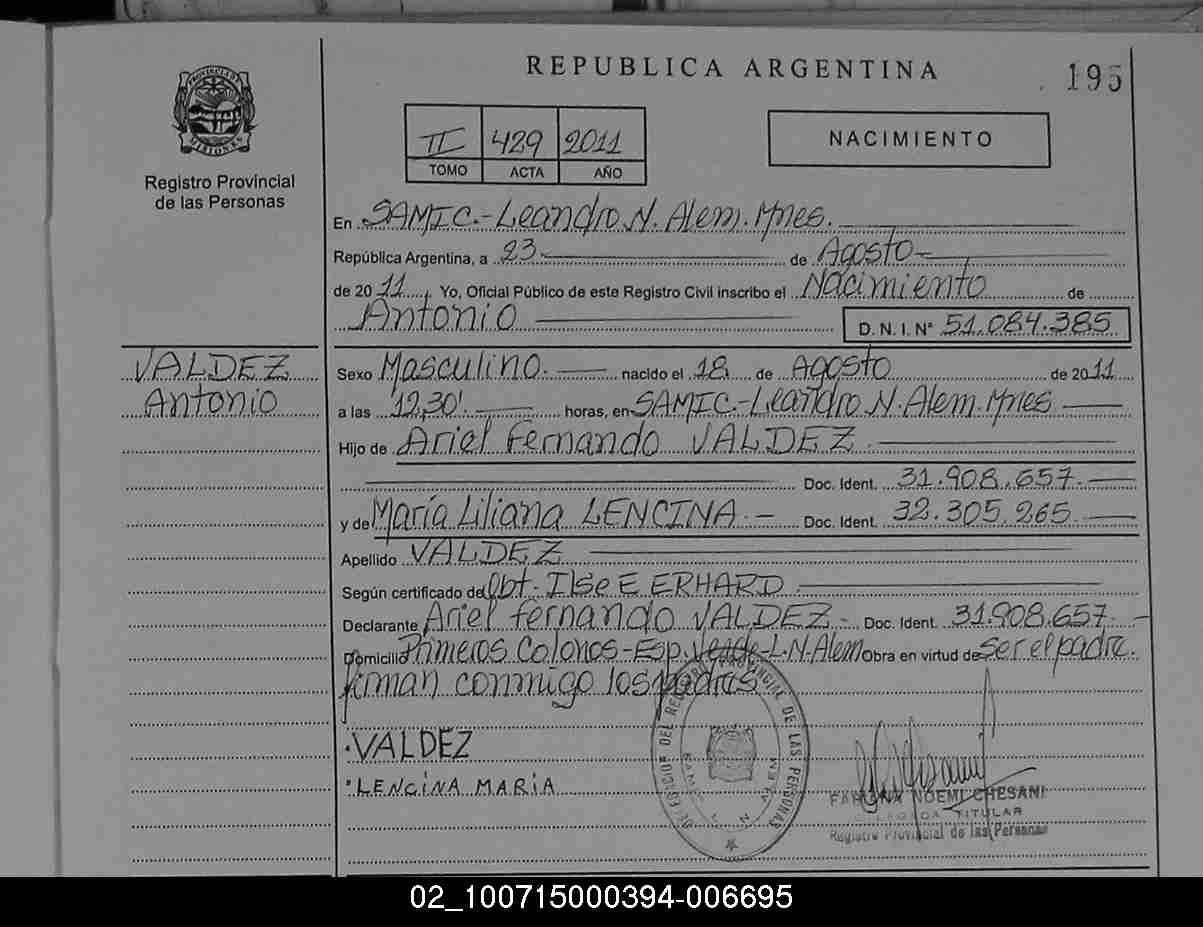 REPUBLICA ARGENTINA
195
PROVINCIA DE MISIONES
Registro Provincial
de las Personas
II 429 2011
TOMO ACTA AÑO
NACIMIENTO
En SAMIC.-Leandro N. Alem. Mnes.
República Argentina, a 23 de Agosto
de 2011, Yo, Oficial Público de este Registro Civil inscribo el Nacimiento de
Antonio D.N.I. N° 51.084.385
VALDEZ
Antonio
Sexo Masculino. nacido el 18 de Agosto de 2011
a las 12,30'. horas, en SAMIC.-Leandro N. Alem. Mnes
Hijo de Ariel Fernando VALDEZ.
Doc. Ident. 31.908.657.
y de María Liliana LENCINA.- Doc. Ident. 32.305.265
Apellido VALDEZ
Según certificado de Obt. Ilse E ERHARD.
Declarante Ariel fernando VALDEZ- Doc. Ident. 31.908.657.-
Domicilio Primeros Colonos-Esp. Verde-L.N.Alem Obra en virtud de ser el padre.
firman conmigo los padres
VALDEZ
LENCINA MARIA
DELEGACION DEL REGISTRO PROVINCIAL DE LAS PERSONAS
SAMIC L. N. ALEM
FABIANA NOEMI CHESANI
DELEGADA TITULAR
Registro Provincial de las Personas
02_100715000394-006695